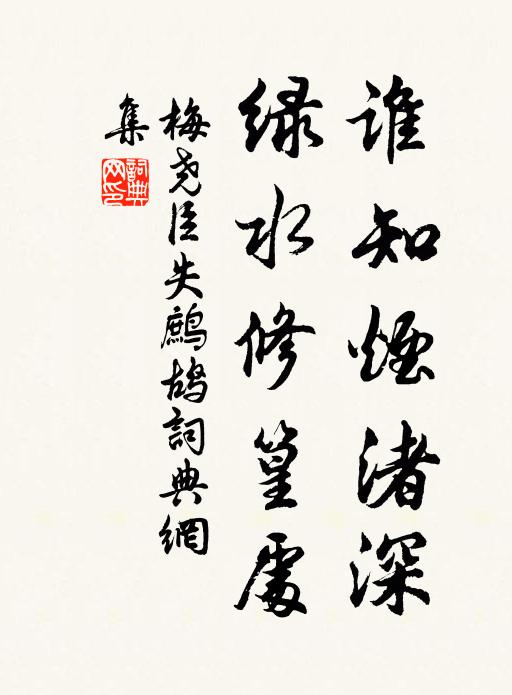 誰知煙渚深
綠水修篁處
梅堯臣失鷓鴣詞典網
集
詞典
网印